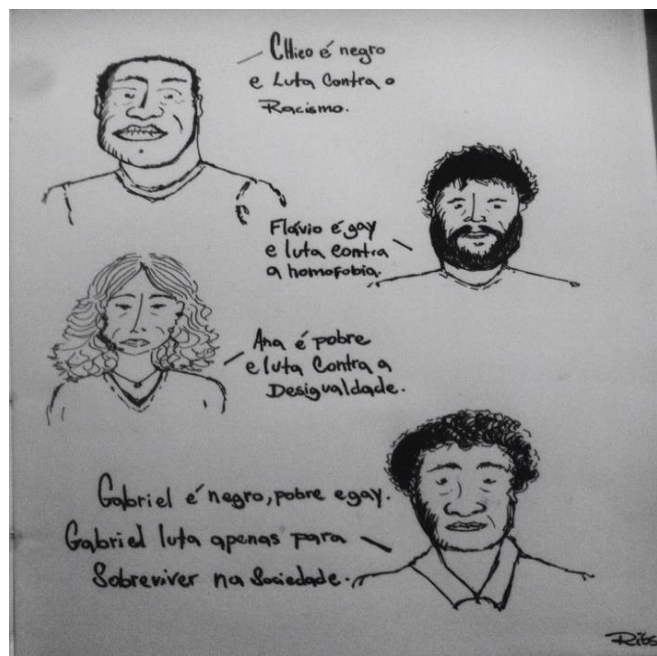 Chico é negro
e Luta Contra o
Racismo.
Flávio é gay
e luta contra
a homofobia.
Ana é pobre
e luta Contra a
Desigualdade.
Gabriel é negro, pobre e gay.
Gabriel luta apenas para
Sobreviver na Sociedade.
Ribs